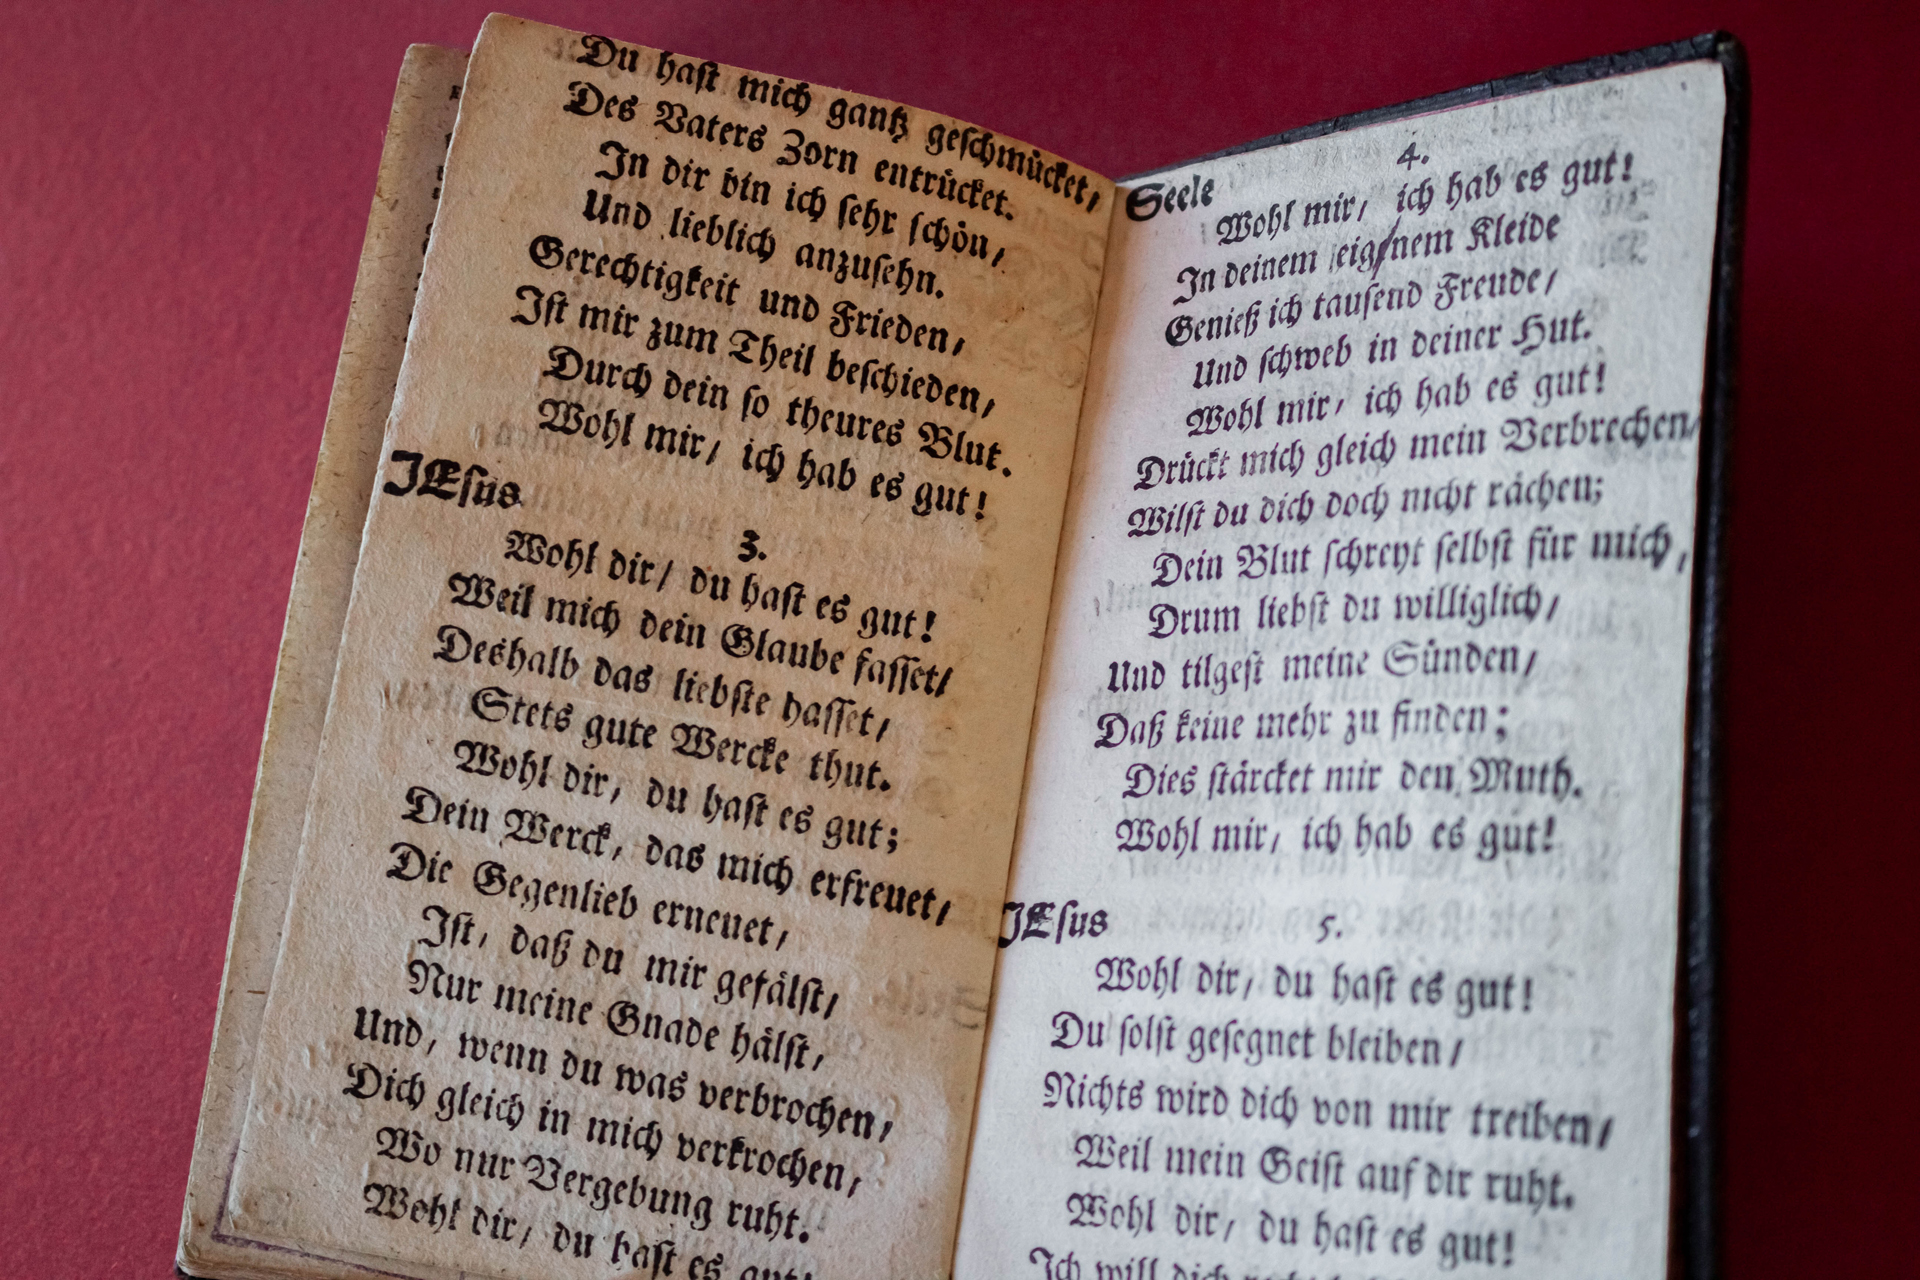 Du haſt mich gantz geſchmücket,
Des Vaters Zorn entrücket.
In dir bin ich ſehr ſchön,
Und lieblich anzuſehn.
Gerechtigkeit und Frieden,
Iſt mir zum Theil beſchieden,
Durch dein ſo theures Blut.
Wohl mir, ich hab es gut!
JEſus
3.
Wohl dir, du haſt es gut!
Weil mich dein Glaube faſſet,
Deshalb das liebſte haſſet,
Stets gute Wercke thut.
Wohl dir, du haſt es gut;
Dein Werck, das mich erfreuet,
Die Gegenlieb erneuet,
Iſt, daß du mir gefälſt,
Nur meine Gnade hälſt,
Und, wenn du was verbrochen,
Dich gleich in mich verkrochen,
Wo nur Vergebung ruht.
Wohl dir, du haſt es gut!
Seele
4.
Wohl mir, ich hab es gut!
In deinem eignem Kleide
Genieß ich tauſend Freude,
Und ſchweb in deiner Hut.
Wohl mir, ich hab es gut!
Drückt mich gleich mein Verbrechen,
Wilſt du dich doch nicht rächen;
Dein Blut ſchreyt ſelbſt für mich,
Drum liebſt du williglich,
Und tilgeſt meine Sünden,
Daß keine mehr zu finden;
Dies ſtärcket mir den Muth.
Wohl mir, ich hab es gut!
JEſus
5.
Wohl dir, du haſt es gut!
Du ſolſt geſegnet bleiben,
Nichts wird dich von mir treiben,
Weil mein Geiſt auf dir ruht.
Wohl dir, du haſt es gut!
Ich will dich